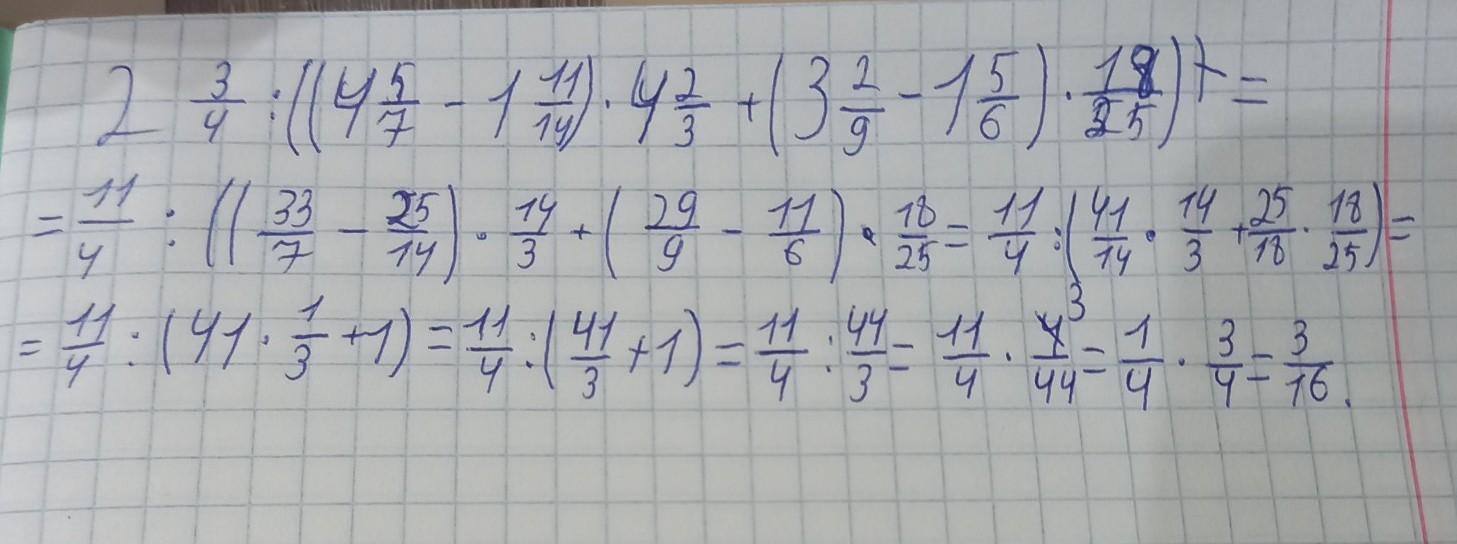 2 3/4 : ((4 5/7 - 1 11/14) · 4 2/3 + (3 2/9 - 1 5/6) · 18/25) =
= 11/4 : ((33/7 - 25/14) · 14/3 + (29/9 - 11/6) · 18/25 = 11/4 : (41/14 · 14/3 + 25/18 · 18/25) =
= 11/4 : (41 · 1/3 + 1) = 11/4 : (41/3 + 1) = 11/4 : 44/3 = 11/4 · 3/44 = 1/4 · 3/4 = 3/16.